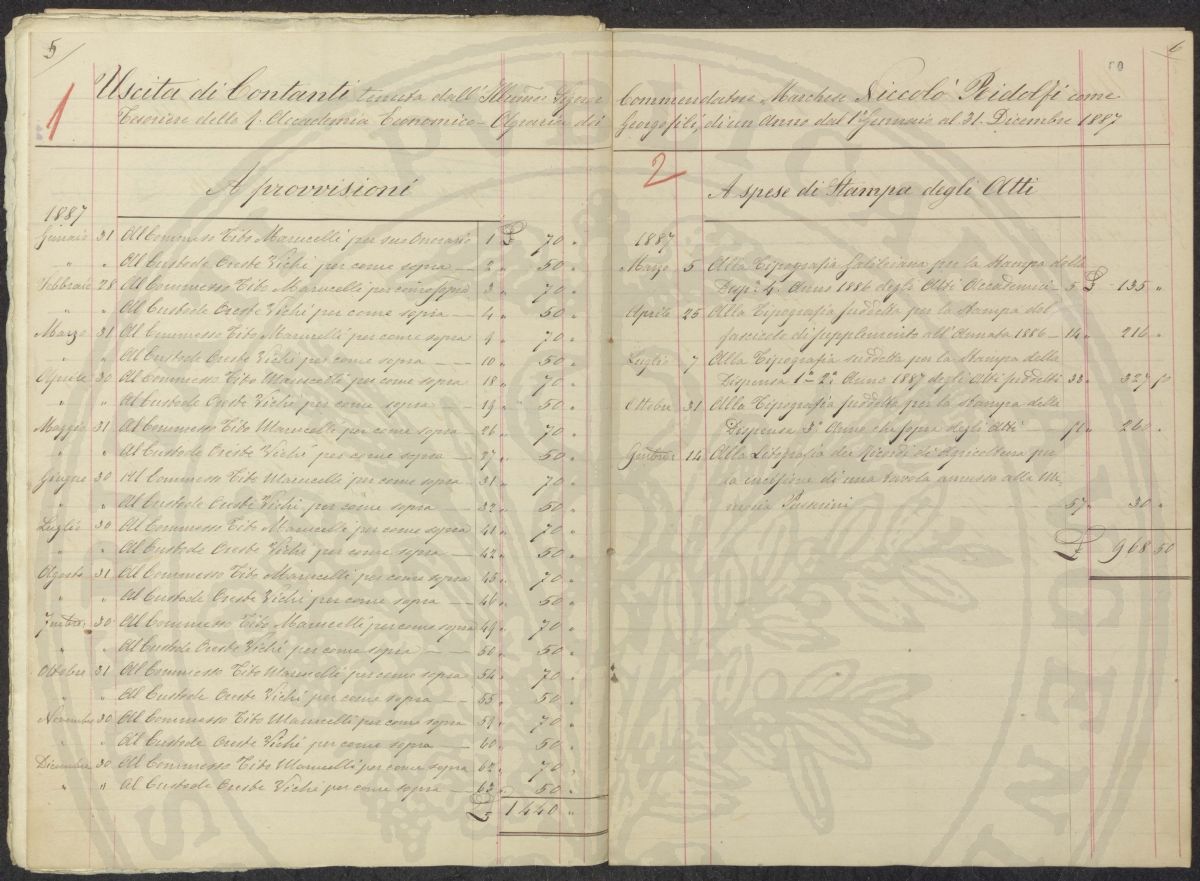 5
1
Uscita di Contanti tenuta dall' Illmo Signor
Tesoriere della R. Accademia Economico-Agraria dei
A provvisioni
1887
Gennaio 31 Al Commesso Tito Marucelli per suo Onorario 1 £ 70 "
" " Al Custode Oreste Vichi per come sopra 2 " 50 "
Febbraio 28 Al Commesso Tito Marucelli per come sopra 3 " 70 "
" " Al Custode Oreste Vichi per come sopra 4 " 50 "
Marzo 31 Al Commesso Tito Marucelli per come sopra 9 " 70 "
" " Al Custode Oreste Vichi per come sopra 10 " 50 "
Aprile 30 Al Commesso Tito Marucelli per come sopra 18 " 70 "
" " Al Custode Oreste Vichi per come sopra 19 " 50 "
Maggio 31 Al Commesso Tito Marucelli per come sopra 26 " 70 "
" " Al Custode Oreste Vichi per come sopra 27 " 50 "
Giugno 30 Al Commesso Tito Marucelli per come sopra 31 " 70 "
" " Al Custode Oreste Vichi per come sopra 32 " 50 "
Luglio 30 Al Commesso Tito Marucelli per come sopra 41 " 70 "
" " Al Custode Oreste Vichi per come sopra 42 " 50 "
Agosto 31 Al Commesso Tito Marucelli per come sopra 45 " 70 "
" " Al Custode Oreste Vichi per come sopra 46 " 50 "
7mbre 30 Al Commesso Tito Marucelli per come sopra 49 " 70 "
" " Al Custode Oreste Vichi per come sopra 50 " 50 "
Ottobre 31 Al Commesso Tito Marucelli per come sopra 54 " 70 "
" " Al Custode Oreste Vichi per come sopra 55 " 50 "
Novembre 30 Al Commesso Tito Marucelli per come sopra 59 " 70 "
" " Al Custode Oreste Vichi per come sopra 60 " 50 "
Dicembre 30 Al Commesso Tito Marucelli per come sopra 62 " 70 "
" " Al Custode Oreste Vichi per come sopra 63 " 50 "
£ 1440 "
6
Commendatore Marchese Niccolò Ridolfi come
Georgofili, di un Anno dal 1° Gennaio al 31. Dicembre 1887
2
A spese di Stampa degli Atti
1887
Marzo 5 Alla Tipografia Galileiana per la Stampa della
Disp.a 4.a Anno 1886 degli Atti Accademici 5 £ 135 "
Aprile 25 Alla Tipografia suddetta per la Stampa del
fascicolo di supplemento all'Annata 1886 14 " 216 "
Luglio 7 Alla Tipografia suddetta per la Stampa della
Dispensa 1a 2a Anno 1887 degli Atti suddetti 33 " 327 50
Ottobre 31 Alla Tipografia suddetta per la Stampa della
Dispensa 3a Anno che sopra degli Atti 51 " 260 "
14 Alla Litografia dei di Agricoltura per
la incisione di una tavola annessa alla Me,
moria Passerini 57 " 30 "
£ 968 50